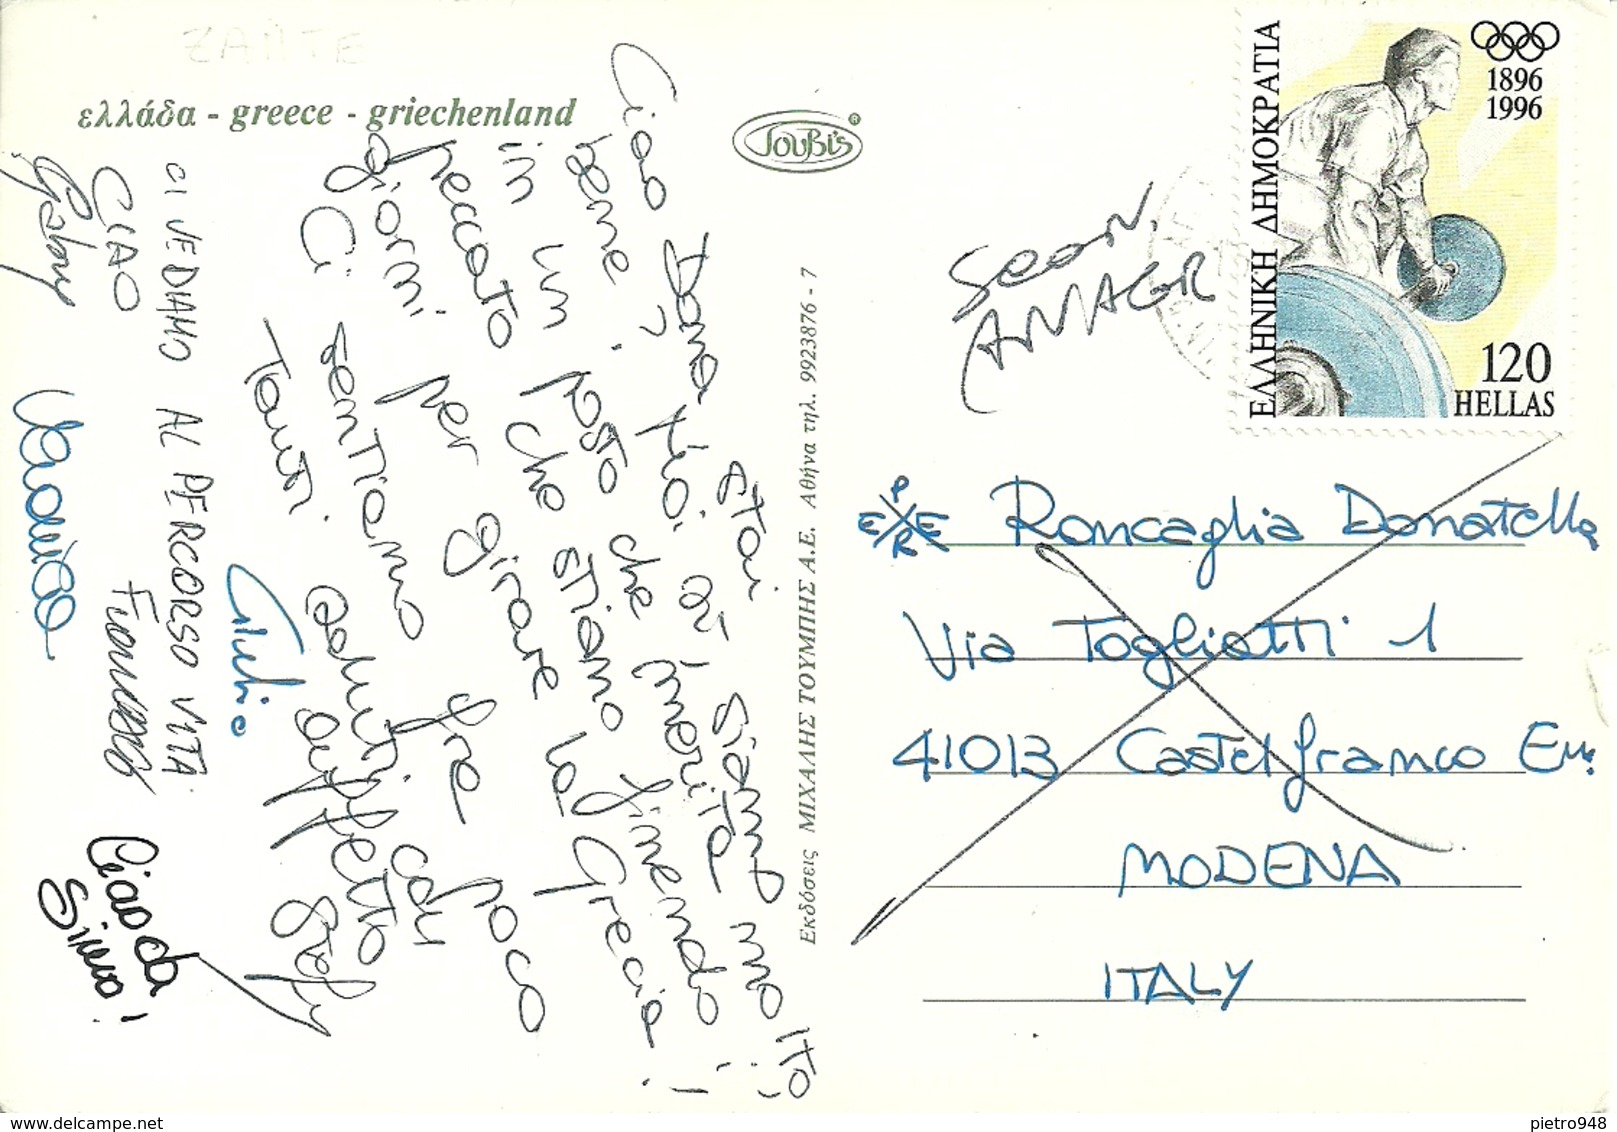 ZANTE
ελλάδα - greece - griechenland
Ciao Donatella, stai
bene? Noi qui siamo molto
in un posto che merita!
peccato che stiamo finendo i
giorni per girare la Grecia!
Ci sentiamo fra poco
Tanti saluti cari
affetto
Stefy
Giulio
CI VEDIAMO AL PERCORSO VITA
CIAO
Francesco
Gabry
Veronica
Ciao da
Simo!
Toubi's ®
Εκδόσεις ΜΙΧΑΛΗΣ ΤΟΥΜΠΗΣ Α.Ε. Αθήνα τηλ. 9923876 - 7
ΕΛΛΗΝΙΚΗ ΔΗΜΟΚΡΑΤΙΑ
1896
1996
120
HELLAS
Roncaglia Donatella
Via Togliatti 1
41013 Castelfranco Em.
MODENA
ITALY
delcampe.net
pietro948